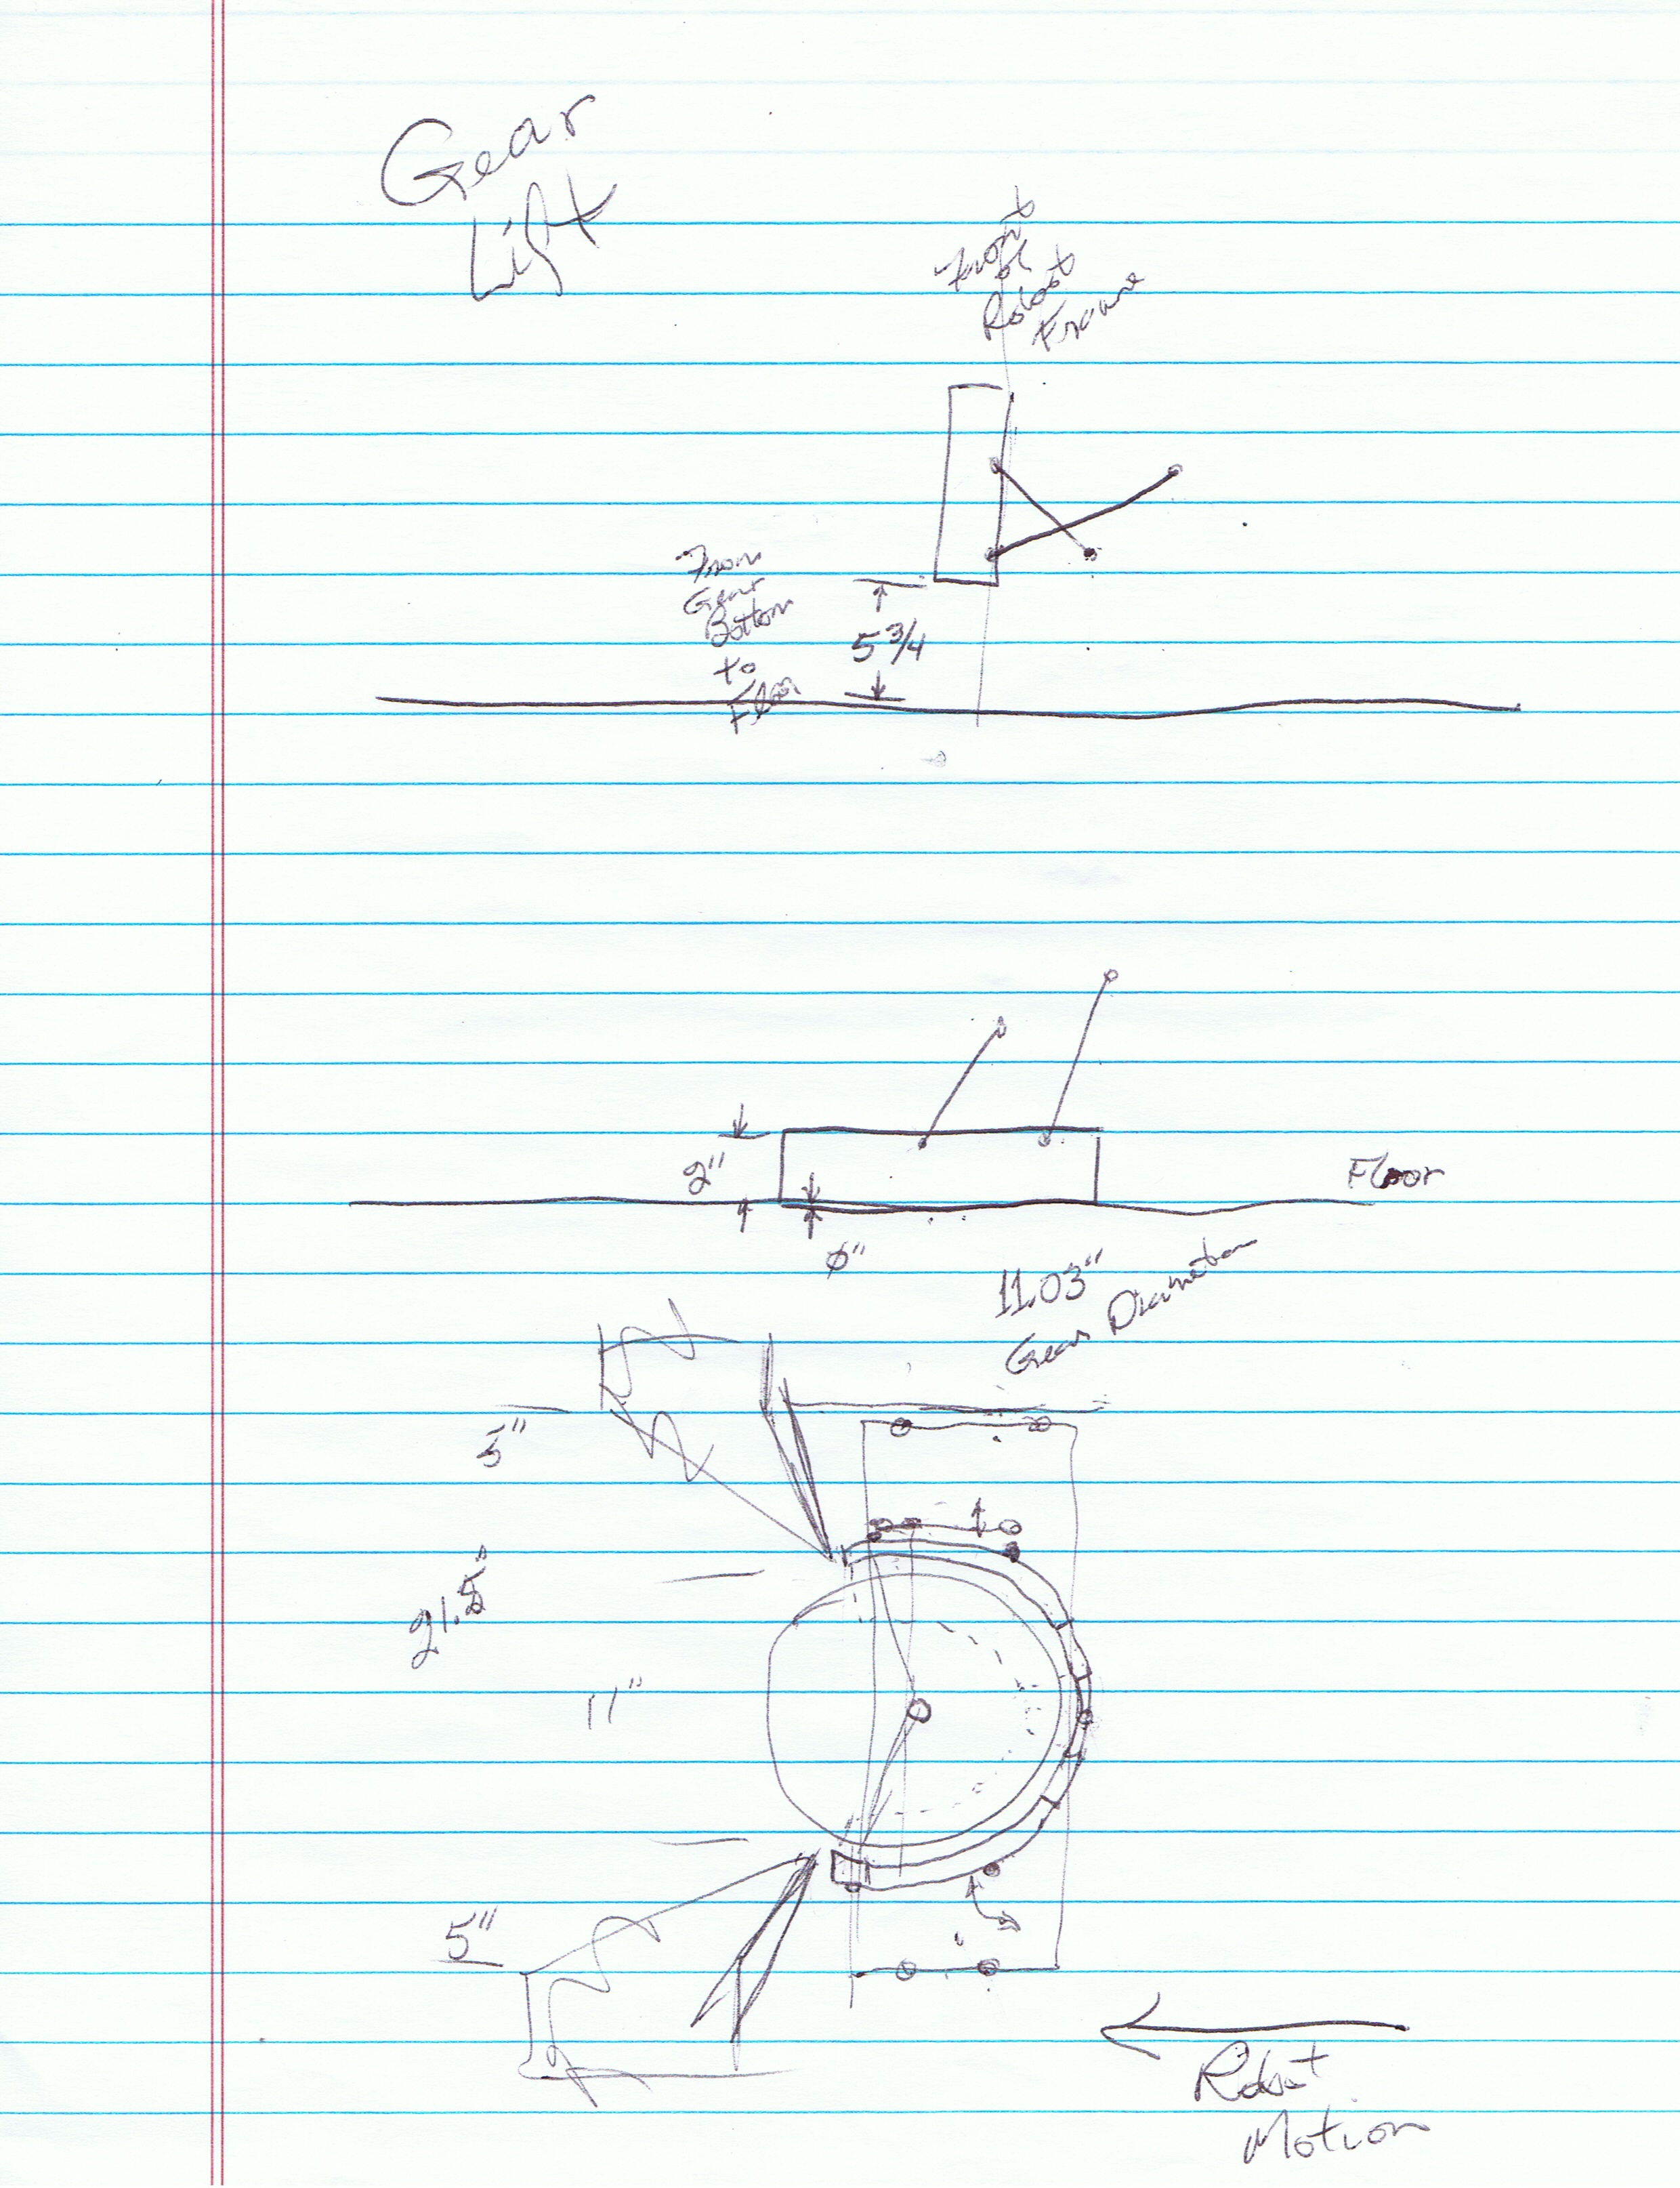 Gear
Lift
Front
of
Robot
Frame
From
Gear
Bottom
to
Floor
5 3/4
2"
Floor
Ø"
11.03"
Gear Diameter
5"
21.5"
11"
5"
Robot
Motion